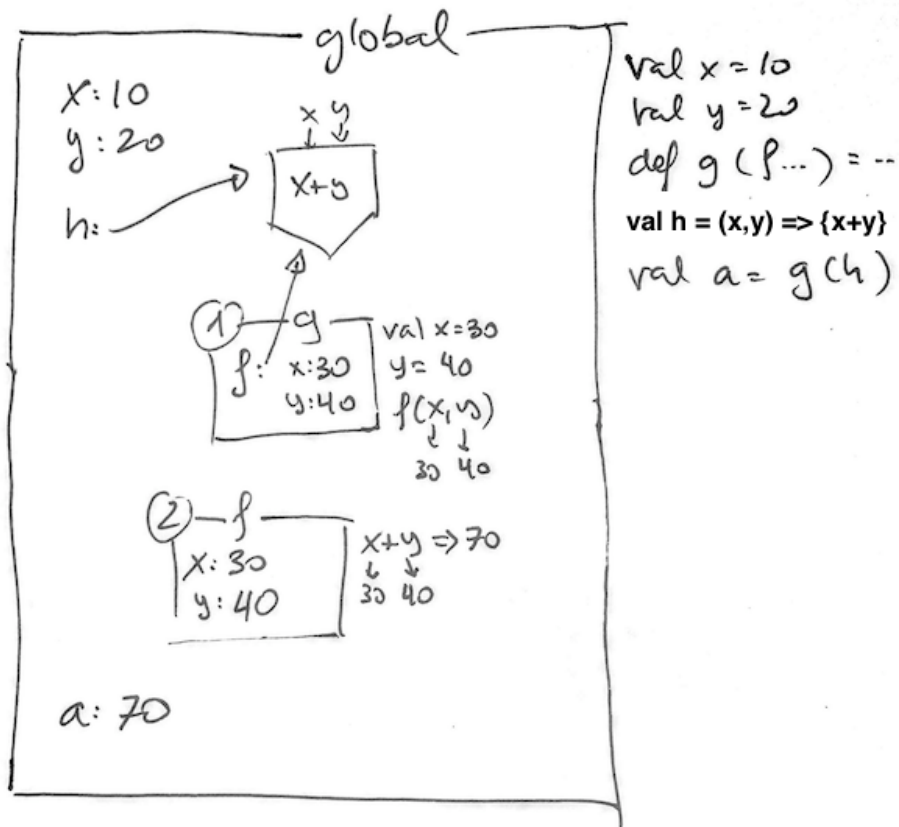 global
x:10
y:20
h:
x y
x+y
1 g
f: x:30
y:40
val x=30
y= 40
f(x,y)
30 40
2 f
x: 30
y: 40
x+y => 70
30 40
a: 70
val x = 10
val y = 20
def g (f...) = --
val h = (x,y) => {x+y}
val a= g(h)